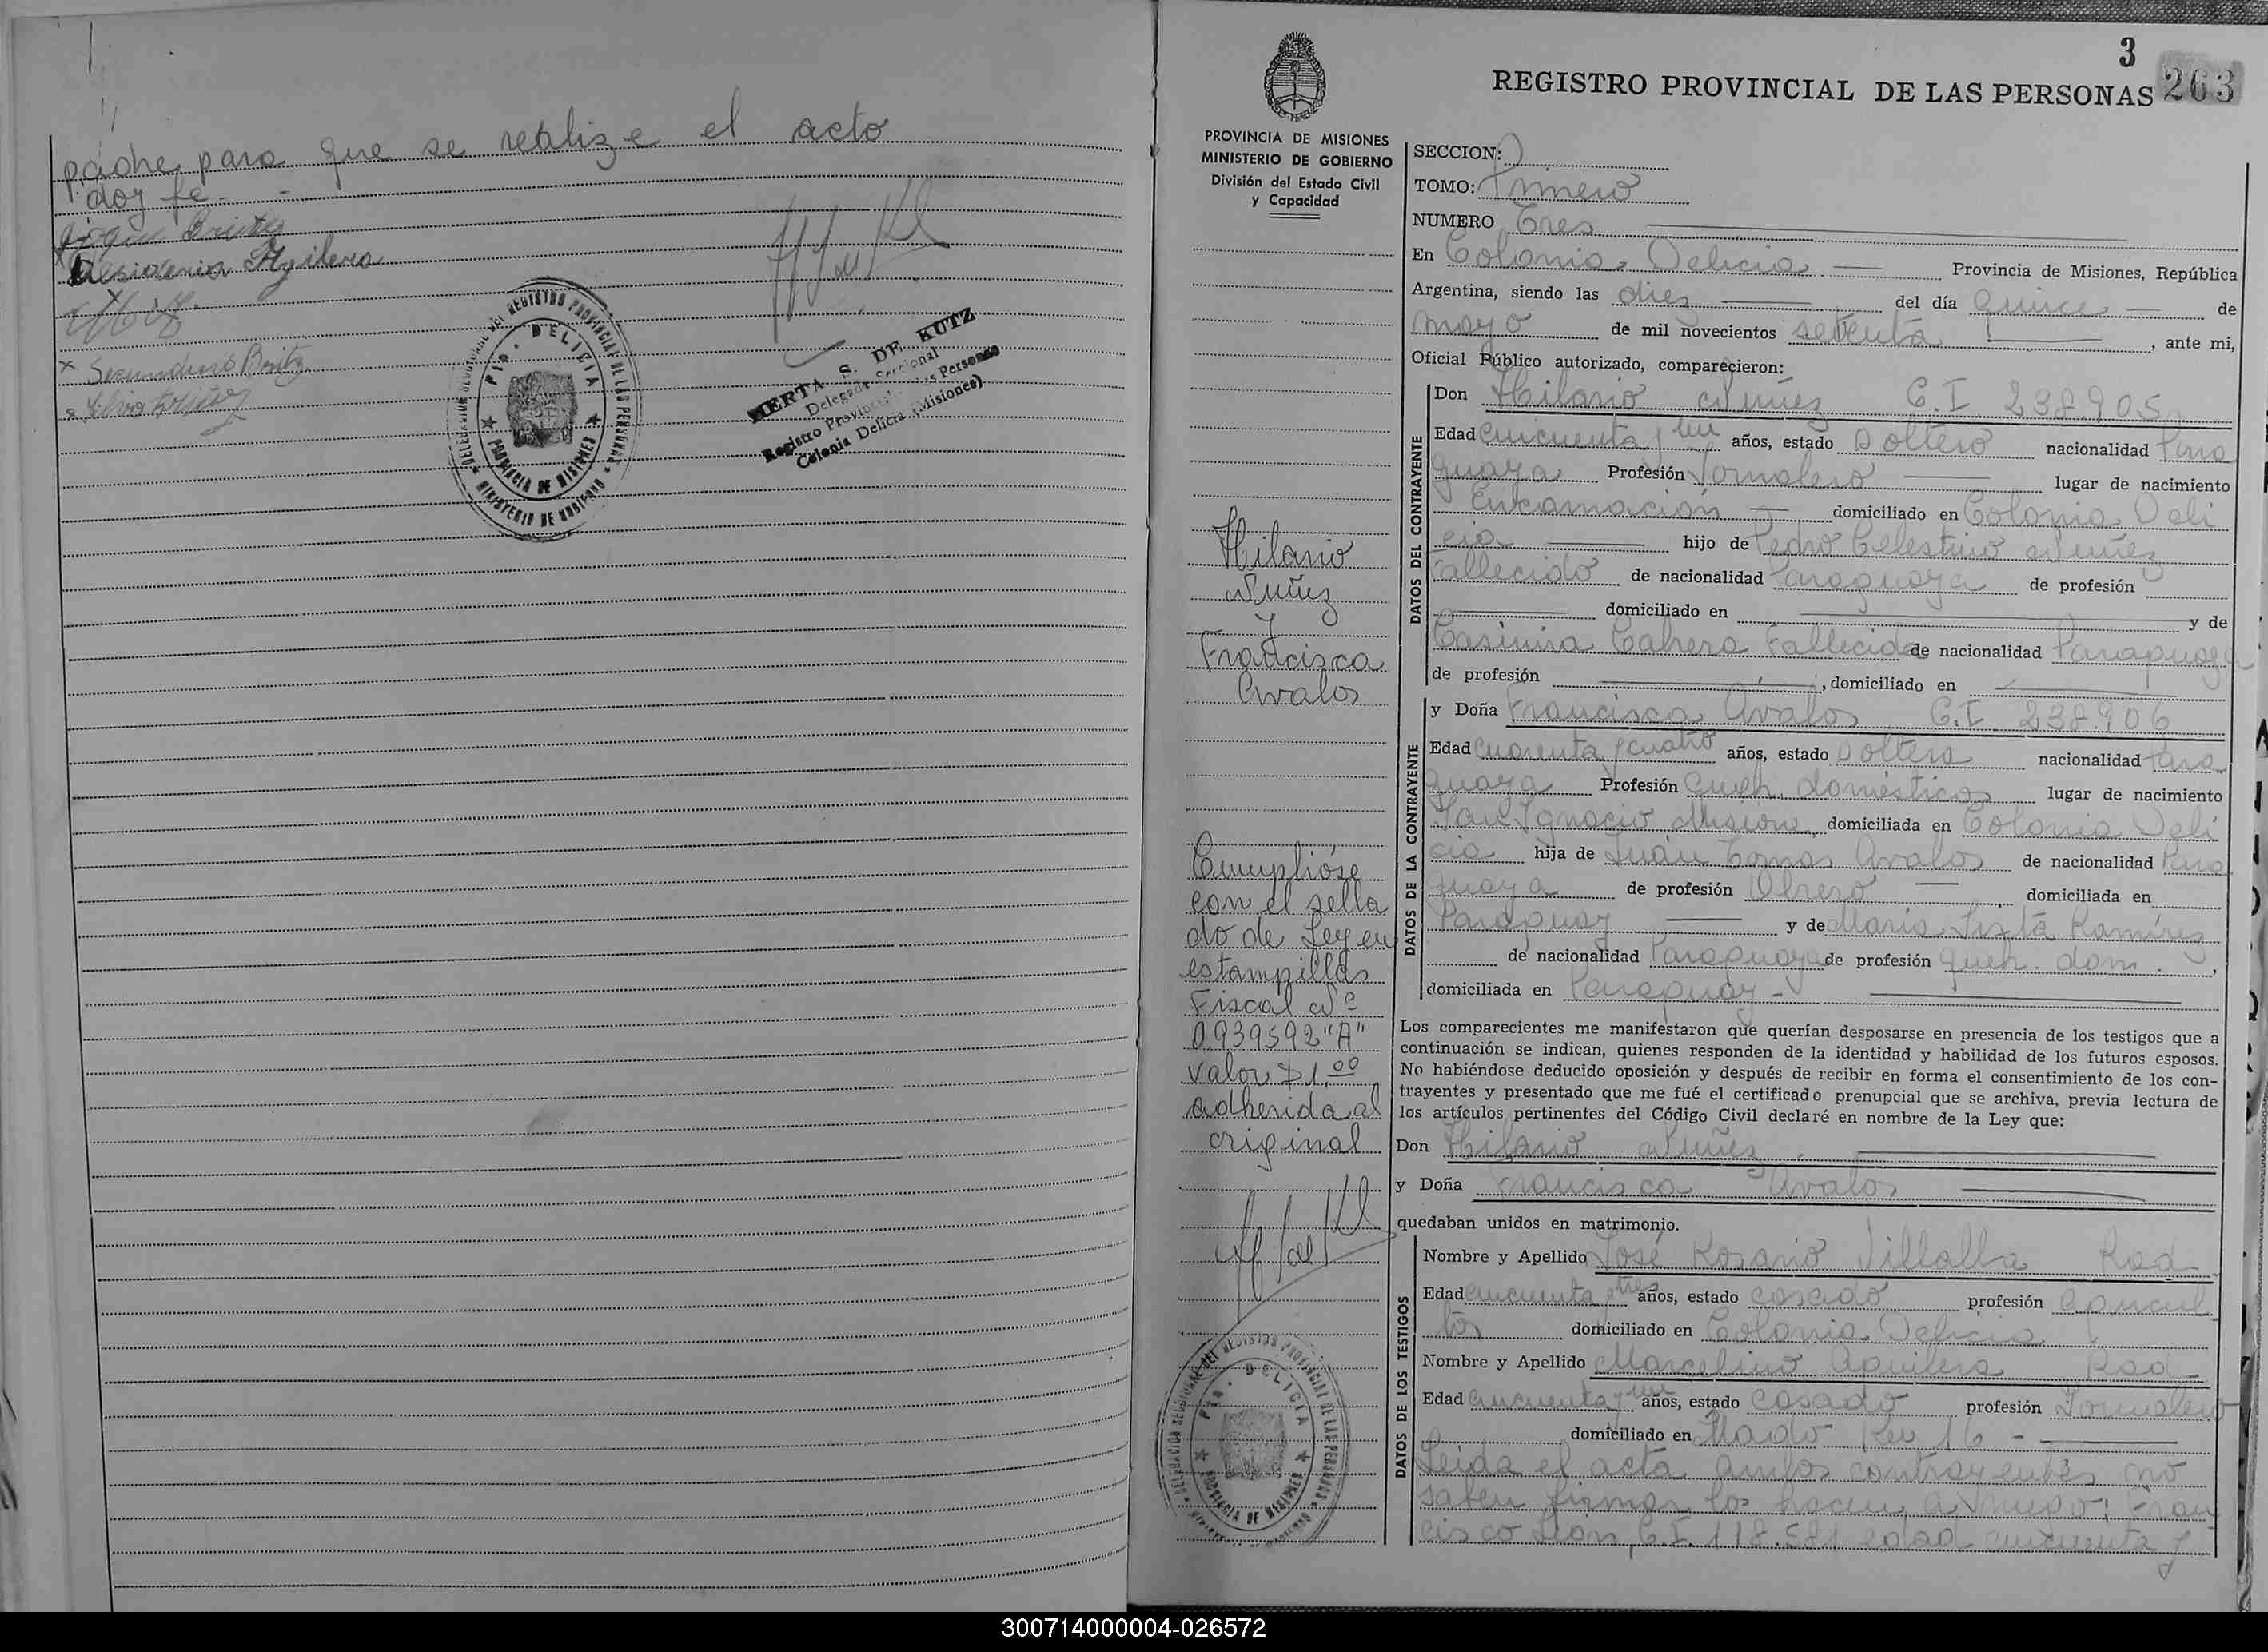 padre para que se realize el acto
doy fe.-
Desideria Aguilera
Secundino Britz
DELEGACION SECCIONAL DEL REGISTRO PROVINCIAL DE LAS PERSONAS
Pto. DELICIA
PROVINCIA DE MISIONES
MINISTERIO DE GOBIERNO
HERTA S. DE KUTZ
Delegada Seccional
Registro Provincial de las Personas
Colonia Delicia (Misiones)
3
263
REGISTRO PROVINCIAL DE LAS PERSONAS
PROVINCIA DE MISIONES
MINISTERIO DE GOBIERNO
División del Estado Civil
y Capacidad
Hilario
Nuñez
y
Francisca
Avalos
Cumplióse
con el sella
do de Ley en
estampillas
Fiscal Nº
0939592 "A"
valor $ 1,00
adherida al
original
DELEGACION SECCIONAL DEL REGISTRO PROVINCIAL DE LAS PERSONAS
Pto. DELICIA
PROVINCIA DE MISIONES
SECCION:
TOMO: Primero
NUMERO Tres
En Colonia Delicia Provincia de Misiones, República
Argentina, siendo las dies del día quince de
mayo de mil novecientos setenta , ante mi,
Oficial Público autorizado, comparecieron:
DATOS DEL CONTRAYENTE
Don Hilario Nuñez C.I. 238.905
Edad cincuenta y un años, estado Soltero nacionalidad Para
guaya Profesión Jornalero lugar de nacimiento
Encarnación domiciliado en Colonia Deli
cia hijo de Pedro Celestino Nuñez
Fallecido de nacionalidad Paraguaya de profesión
domiciliado en y de
Casimira Cabrera Fallecida de nacionalidad Paraguaya
de profesión , domiciliado en
DATOS DE LA CONTRAYENTE
y Doña Francisca Avalos C.I. 238.906
Edad cuarenta y cuatro años, estado Soltera nacionalidad Para
guaya Profesión queh. domésticos lugar de nacimiento
San Ignacio Misiones domiciliada en Colonia Deli
cia hija de Juan Tomas Avalos de nacionalidad Para
guaya de profesión Obrero domiciliada en
Paraguay y de Maria Sixta Ramírez
de nacionalidad Paraguaya de profesión queh. dom. ,
domiciliada en Paraguay -
Los comparecientes me manifestaron que querían desposarse en presencia de los testigos que a
continuación se indican, quienes responden de la identidad y habilidad de los futuros esposos.
No habiéndose deducido oposición y después de recibir en forma el consentimiento de los con-
trayentes y presentado que me fué el certificado prenupcial que se archiva, previa lectura de
los artículos pertinentes del Código Civil declaré en nombre de la Ley que:
Don Hilario Nuñez
y Doña Francisca Avalos
quedaban unidos en matrimonio.
DATOS DE LOS TESTIGOS
Nombre y Apellido José Rosario Villalba
Edad cincuenta y tres años, estado casado profesión agricul
tor domiciliado en Colonia Delicia
Nombre y Apellido Marcelino Aguilera
Edad cincuenta y un años, estado Casado profesión Jornalero
domiciliado en Mado Km 16 -
Leida el acta ambos contrayentes no
saben firmar lo hacen a ruego: Fran
cisco León C.I. 118.581 edad cincuenta y
300714000004-026572